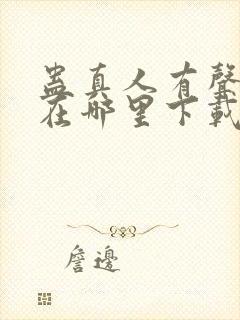 蛊真人有聲
在哪里下載
詹邊